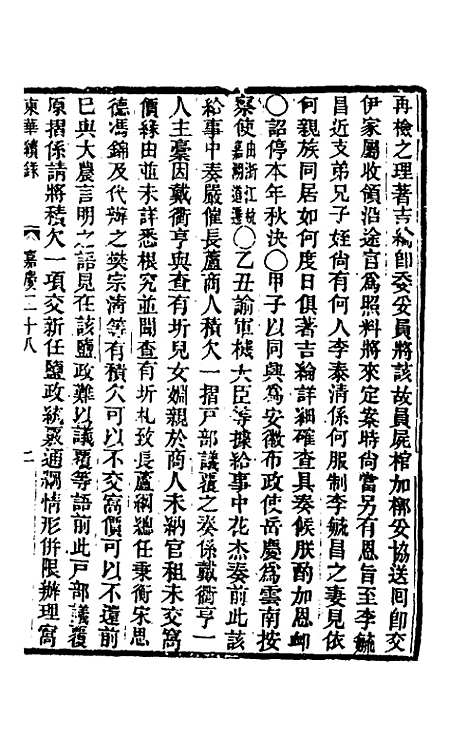 再檢之理著吉綸卽委妥員將該故員屍棺加槨妥協送囘卽交
伊家屬收領沿途官爲照料將來定案時尙當另有恩旨至李毓
昌近支弟兄子姪尙有何人李泰淸係何服制李毓昌之妻見依
何親族同居如何度日俱著吉綸詳細確查具奏候朕酌加恩卹
〇詔停本年秋決〇甲子以同興爲安徽布政使岳慶爲雲南按
察使由浙江杭嘉湖道遷〇乙丑諭軍機大臣等據給事中花杰奏前此該
給事中奏嚴催長蘆商人積欠一摺戶部議覆之奏係戴衢亨一
人主稾因戴衢亨與查有圻兒女姻親於商人未納官租未交窩
價緣由並未詳悉根究並聞查有圻札致長蘆綱總任秉衡宋思
德馮錦及代辦之樊宗淸等有積欠可以不交窩價可以不還前
已與大農言明之語見在該鹽政難以議覆等語前此戶部議覆
原摺係請將積欠一項交新任鹽政統覈通綱情形併限辦理窩
東華續錄 嘉慶二十八 二